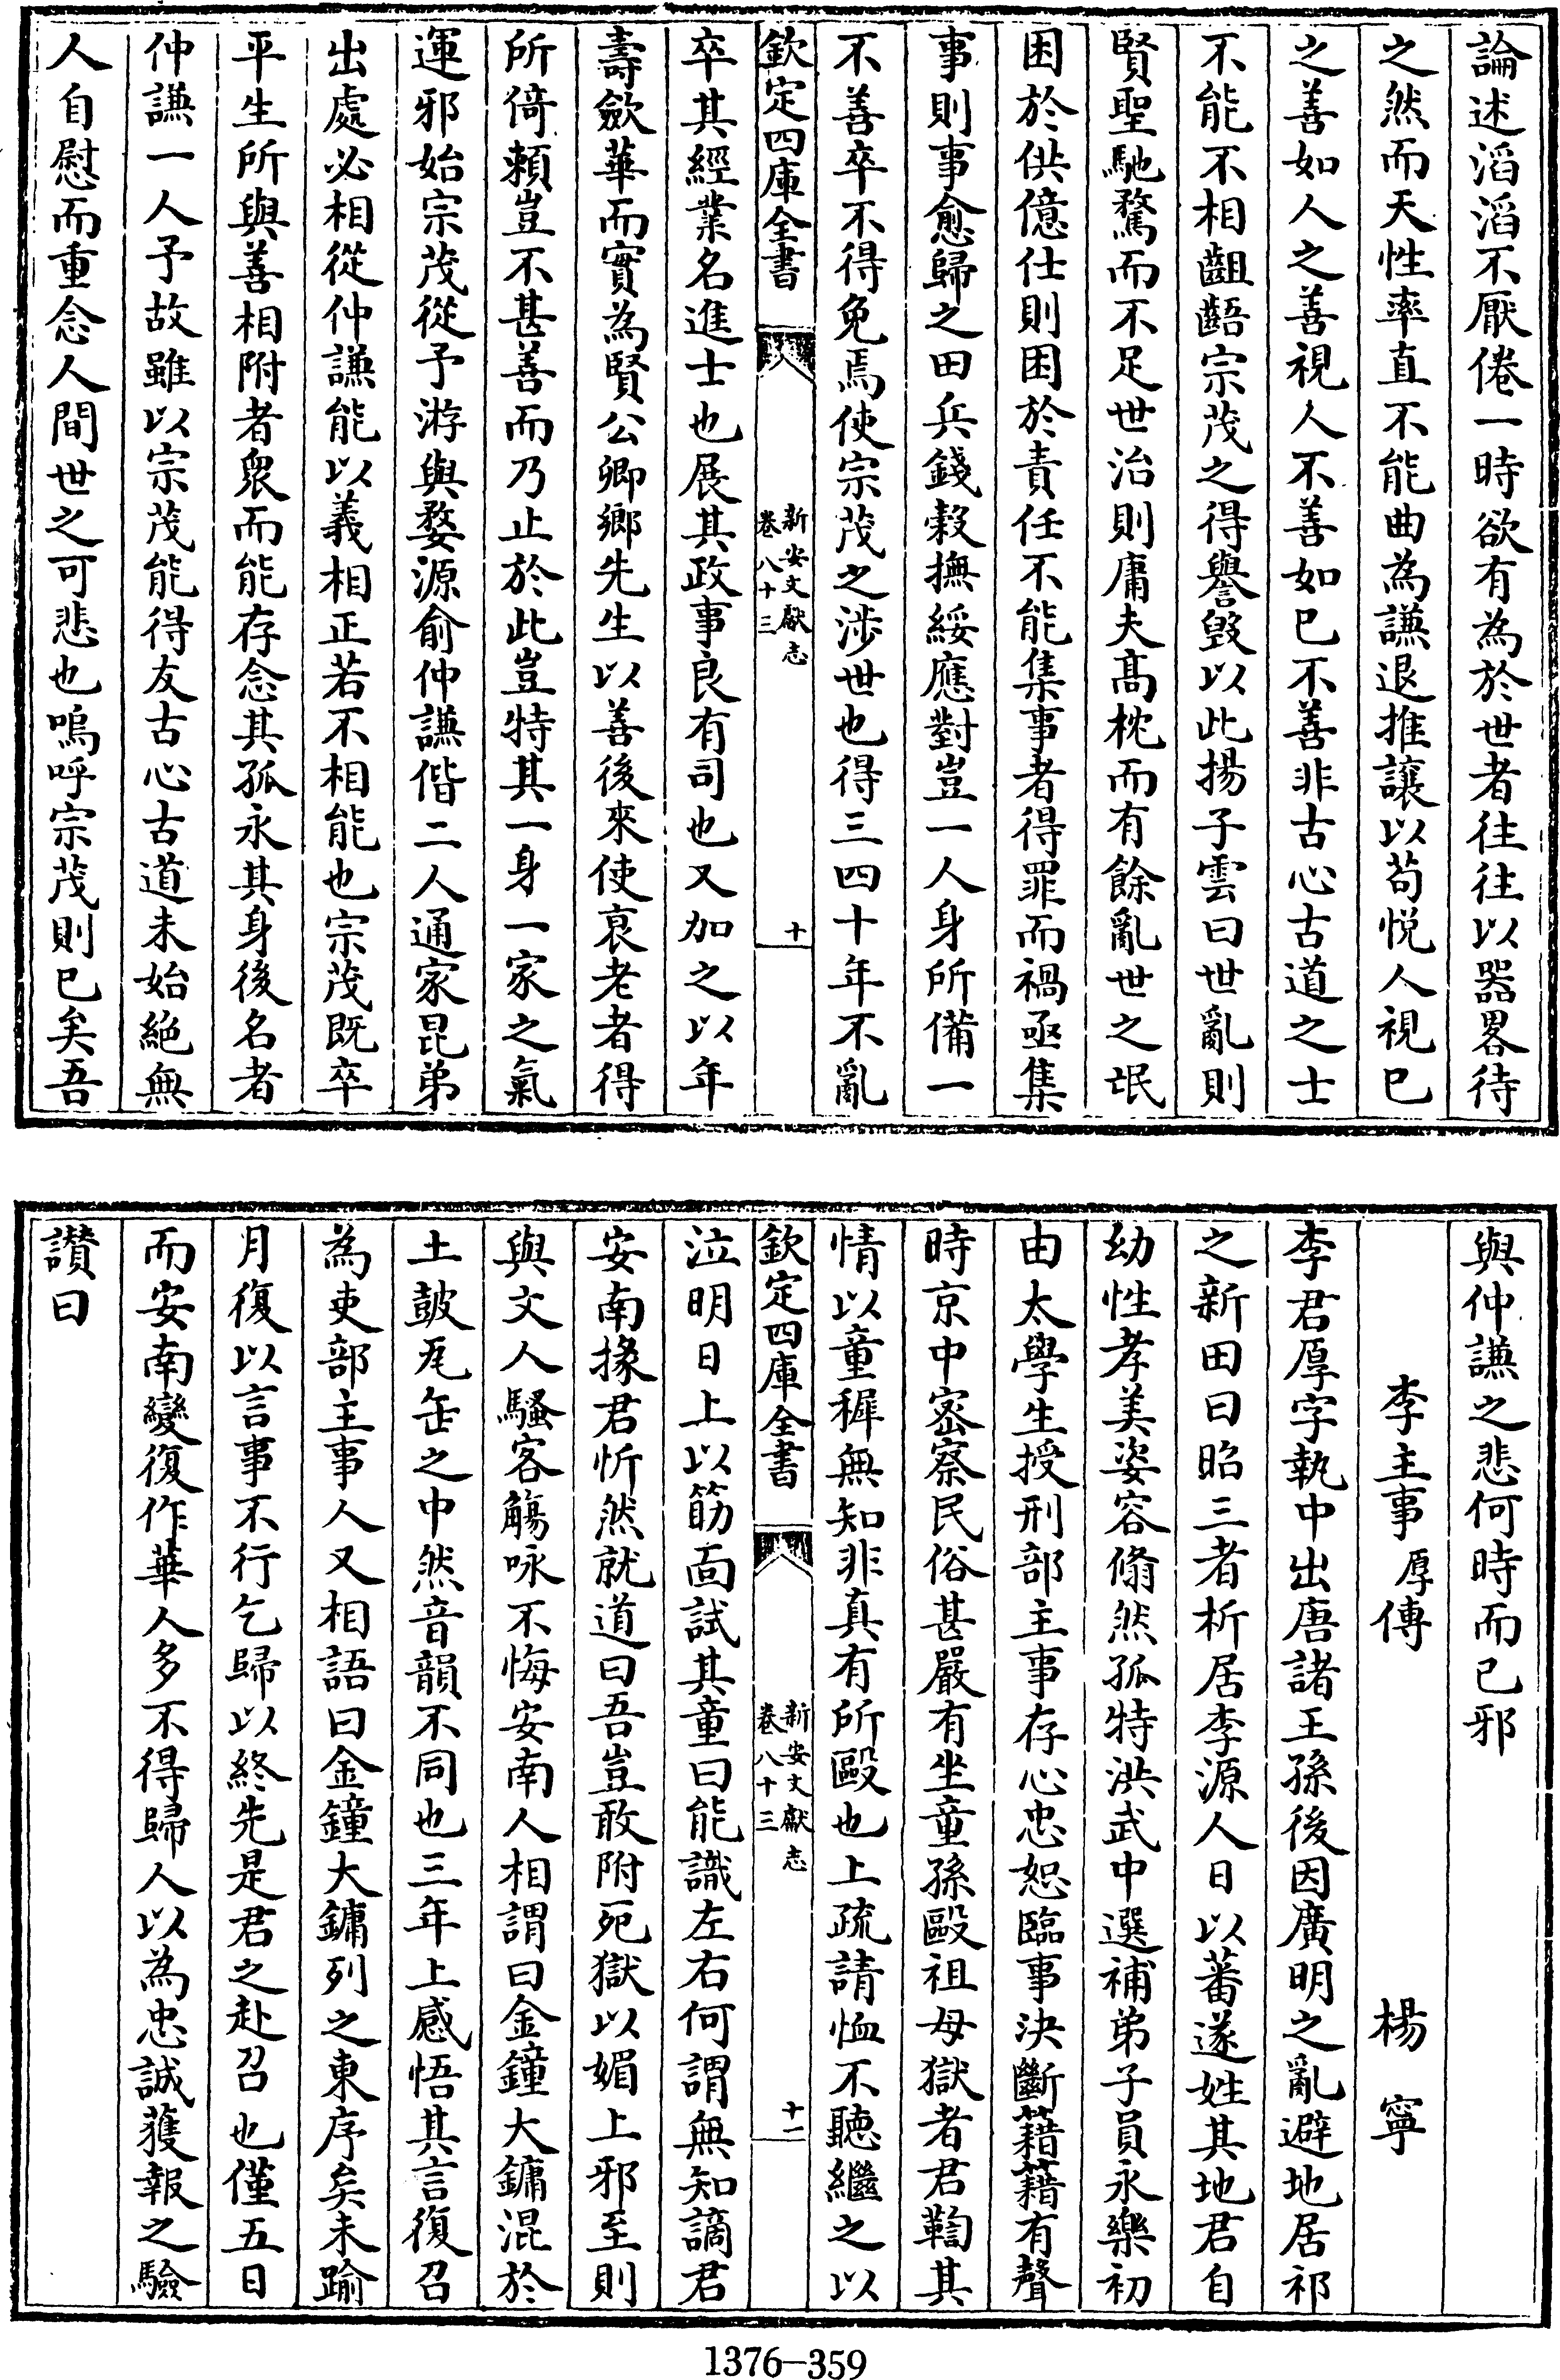 論述滔滔不厭倦一時欲有為於世者往往以器畧待
之然而天性率直不能曲為謙退推讓以苟悅人視已
之善如人之善視人不善如已不善非古心古道之士
不能不相齟齬宗茂之得譽毀以此揚子雲曰世亂則
賢聖馳騖而不足世治則庸夫髙枕而有餘亂世之氓
困於供億仕則困於責任不能集事者得罪而禍亟集
事則事愈歸之田兵錢穀撫綏應對豈一人身所備一
不善卒不得免焉使宗茂之涉世也得三四十年不亂
欽定四庫全書
新安文獻志
卷八十三
十
卒其經業名進士也展其政事良有司也又加之以年
壽歛華而實為賢公卿鄉先生以善後來使哀老者得
所倚賴豈不甚善而乃止於此豈特其一身一家之氣
運邪始宗茂從予游與婺源俞仲謙偕二人通家昆弟
出處必相從仲謙能以義相正若不相能也宗茂既卒
平生所與善相附者衆而能存念其孤永其身後名者
仲謙一人予故雖以宗茂能得友古心古道未始絕無
人自慰而重念人間世之可悲也嗚呼宗茂則已矣吾
與仲謙之悲何時而已邪
李主事厚傳 楊寧
李君厚字執中出唐諸王孫後因廣明之亂避地居祁
之新田曰昭三者析居李源人日以蕃遂姓其地君自
幼性孝美姿容翛然孤特洪武中選補弟子員永樂初
由太學生授刑部主事存心忠恕臨事決斷藉藉有聲
時京中宻察民俗甚嚴有坐童孫毆祖母獄者君鞫其
情以童穉無知非真有所毆也上疏請恤不聽繼之以
欽定四庫全書
新安文獻志
卷八十三
十一
泣明日上以筋面試其童曰能識左右何謂無知謫君
安南掾君忻然就道曰吾豈敢附死獄以媚上邪至則
與文人騷客觴咏不悔安南人相謂曰金鐘大鏞混於
土皷瓦缶之中然音韻不同也三年上感悟其言復召
為吏部主事人又相語曰金鐘大鏞列之東序矣未踰
月復以言事不行乞歸以終先是君之赴召也僅五日
而安南變復作華人多不得歸人以為忠誠獲報之驗
讃曰
1376—359